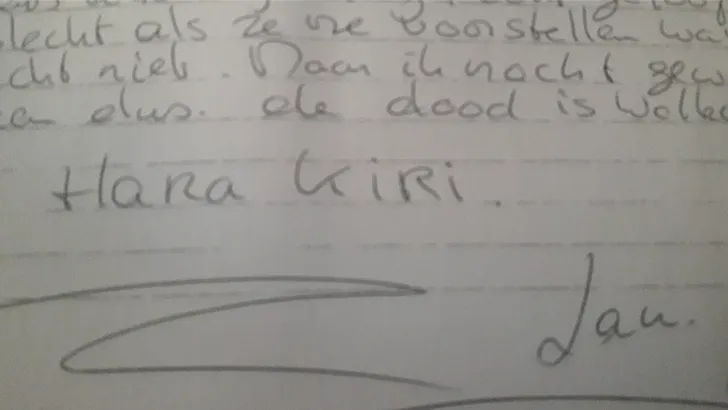 slecht als ze me voorstellen wa
cht niet. Maar ik nocht gew
dus. de dood is Wolle
HARA KiRi.
Jan.